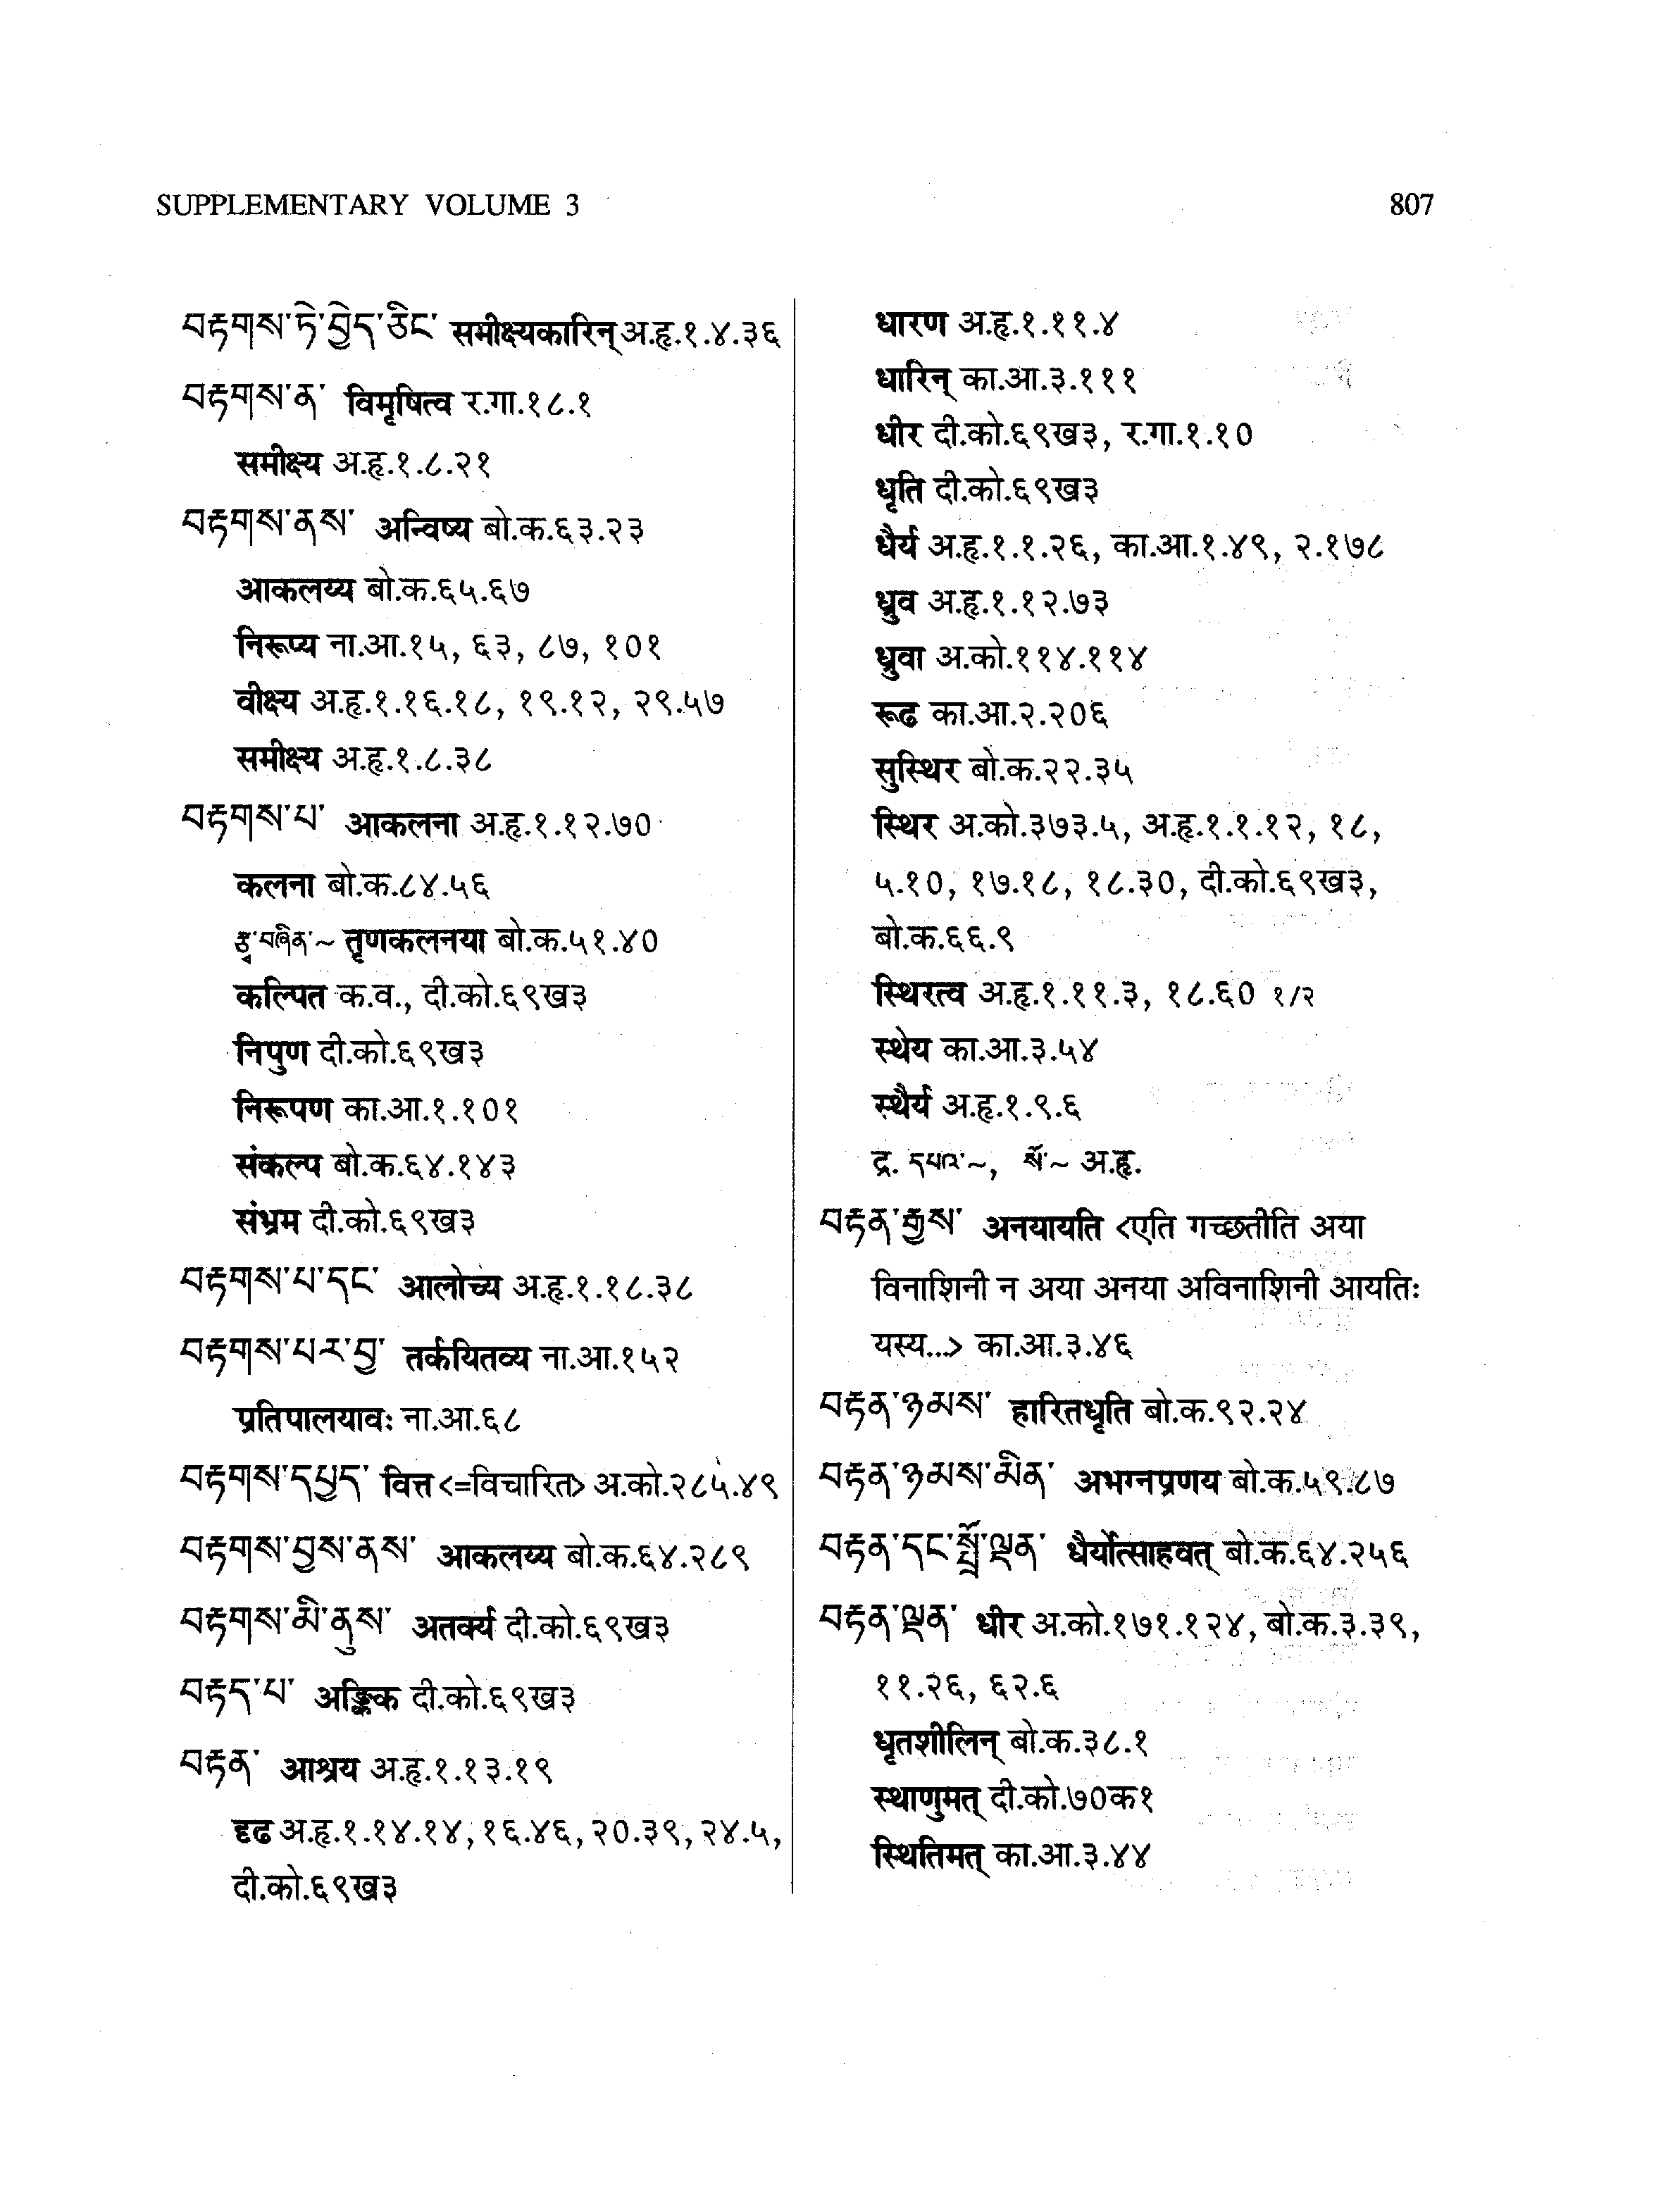 SUPPLEMENTARY VOLUME 3 807
བརྟགས་ཏེ་བྱེད་ཅིང་ समीक्ष्यकारिन् अ.हृ.१.४.३६
བརྟགས་ན་ विमृषित्व र.गा.१८.१
समीक्ष्य अ.हृ.१.८.२१
བརྟགས་ནས་ अन्विष्य बो.क.६३.२३
आकलय्य बो.क.६५.६७
निरूप्य ना.आ.१५, ६३, ८७, १०१
वीक्ष्य अ.हृ.१.१६.१८, १९.१२, २९.५७
समीक्ष्य अ.हृ.१.८.३८
བརྟགས་པ་ आकलना अ.हृ.१.१२.७०
कलना बो.क.८४.५६
རྩྭ་བཞིན་~ तृणकलनया बो.क.५१.४०
कल्पित क.व., दी.को.६९ख३
निपुण दी.को.६९ख३
निरूपण का.आ.१.१०१
संकल्प बो.क.६४.१४३
संभ्रम दी.को.६९ख३
བརྟགས་པ་དང་ आलोच्य अ.हृ.१.१८.३८
བརྟགས་པར་བྱ་ तर्कयितव्य ना.आ.१५२
प्रतिपालयावः ना.आ.६८
བརྟགས་དཔྱད་ वित्त <=विचारित> अ.को.२८५.४९
བརྟགས་བྱས་ནས་ आकलय्य बो.क.६४.२८९
བརྟགས་མི་ནུས་ अतर्क्य दी.को.६९ख३
བརྟད་པ་ अङ्किक दी.को.६९ख३
བརྟན་ आश्रय अ.हृ.१.१३.१९
दृढ अ.हृ.१.१४.१४, १६.४६, २०.३९, २४.५,
दी.को.६९ख३
धारण अ.हृ.१.११.४
धारिन् का.आ.३.१११
धीर दी.को.६९ख३, र.गा.१.१०
धृति दी.को.६९ख३
धैर्य अ.हृ.१.१.२६, का.आ.१.४९, २.१७८
ध्रुव अ.हृ.१.१२.७३
ध्रुवा अ.को.११४.११४
रूढ का.आ.२.२०६
सुस्थिर बो.क.२२.३५
स्थिर अ.को.३७३.५, अ.हृ.१.१.१२, १८,
५.१०, १७.१८, १८.३०, दी.को.६९ख३,
बो.क.६६.९
स्थिरत्व अ.हृ.१.११.३, १८.६० १/२
स्थेय का.आ.३.५४
स्थैर्य अ.हृ.१.९.६
द्र. དཔའ་~, སོ་~ अ.हृ.
བརྟན་རྒྱས་ अनयायति <एति गच्छतीति अया
विनाशिनी न अया अनया अविनाशिनी आयतिः
यस्य...> का.आ.३.४६
བརྟན་ཉམས་ हारितधृति बो.क.९२.२४
བརྟན་ཉམས་མིན་ अभग्नप्रणय बो.क.५९.८७
བརྟན་དང་སྤྲོ་ལྡན་ धैर्योत्साहवत् बो.क.६४.२५६
བརྟན་ལྡན་ धीर अ.को.१७१.१२४, बो.क.३.३९,
११.२६, ६२.६
धृतशीलिन् बो.क.३८.१
स्थाणुमत् दी.को.७०क१
स्थितिमत् का.आ.३.४४